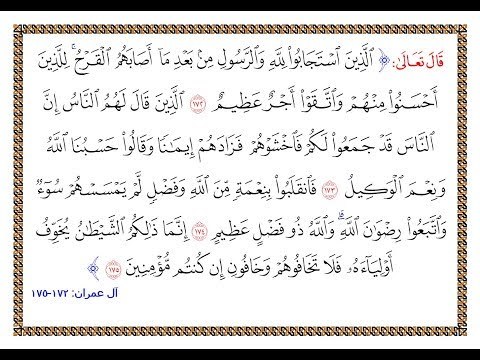 قَالَ تَعَالَى: ﴿ ٱلَّذِينَ ٱسْتَجَابُوا۟ لِلَّهِ وَٱلرَّسُولِ مِنۢ بَعْدِ مَآ أَصَابَهُمُ ٱلْقَرْحُ ۚ لِلَّذِينَ
أَحْسَنُوا۟ مِنْهُمْ وَٱتَّقَوْا۟ أَجْرٌ عَظِيمٌ ١٧٢ ٱلَّذِينَ قَالَ لَهُمُ ٱلنَّاسُ إِنَّ
ٱلنَّاسَ قَدْ جَمَعُوا۟ لَكُمْ فَٱخْشَوْهُمْ فَزَادَهُمْ إِيمَـٰنًا وَقَالُوا۟ حَسْبُنَا ٱللَّهُ
وَنِعْمَ ٱلْوَكِيلُ ١٧٣ فَٱنقَلَبُوا۟ بِنِعْمَةٍ مِّنَ ٱللَّهِ وَفَضْلٍ لَّمْ يَمْسَسْهُمْ سُوٓءٌ
وَٱتَّبَعُوا۟ رِضْوَٰنَ ٱللَّهِ ۗ وَٱللَّهُ ذُو فَضْلٍ عَظِيمٍ ١٧٤ إِنَّمَا ذَٰلِكُمُ ٱلشَّيْطَـٰنُ يُخَوِّفُ
أَوْلِيَآءَهُۥ فَلَا تَخَافُوهُمْ وَخَافُونِ إِن كُنتُم مُّؤْمِنِينَ ١٧٥ ﴾
آل عمران: ١٧٢-١٧٥